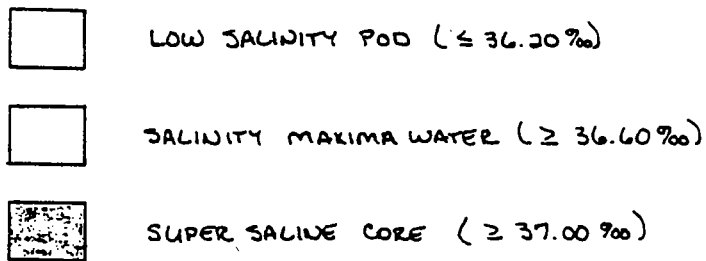 LOW SALINITY POD (≤ 36.20 ‰)
SALINITY MAXIMA WATER (≥ 36.60 ‰)
SUPER SALINE CORE (≥ 37.00 ‰)